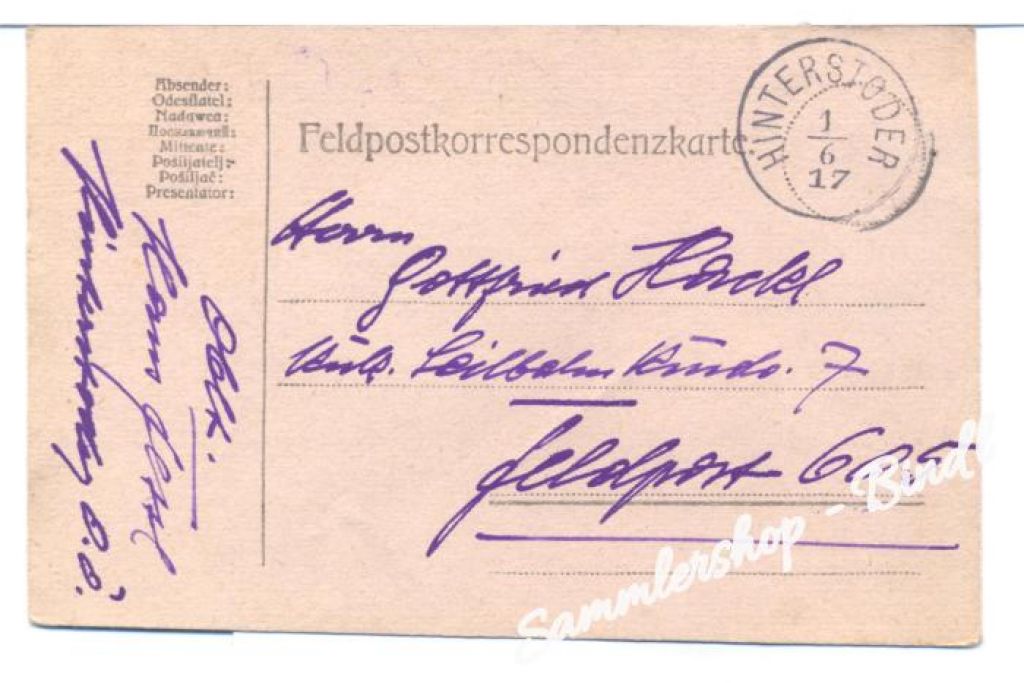 Absender:
Odesílatel:
Nadawca:
Mittente:
Pošiljatelj:
Pošiljač:
Presentator:
Feldpostkorrespondenzkarte.
HINTERSTODER
1
6
17
Herrn
Gottfried Hackl
Seilbahn 7
Feldpost 605
Obst.
O.Ö.
Sammlershop - Bindl